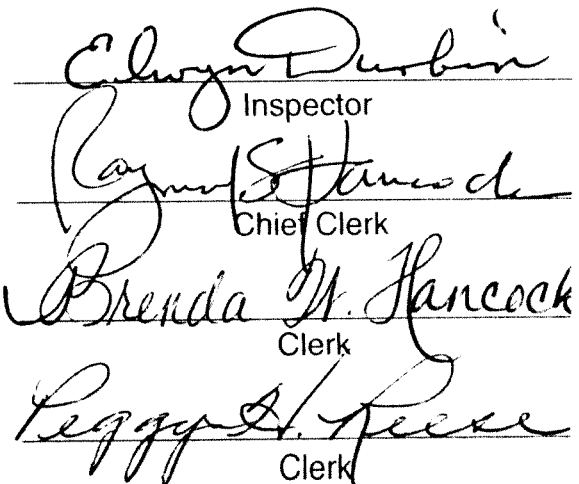 Elwyn Durbin
Inspector
Raymond S. Hancock
Chief Clerk
Brenda W. Hancock
Clerk
Peggy H. Reese
Clerk